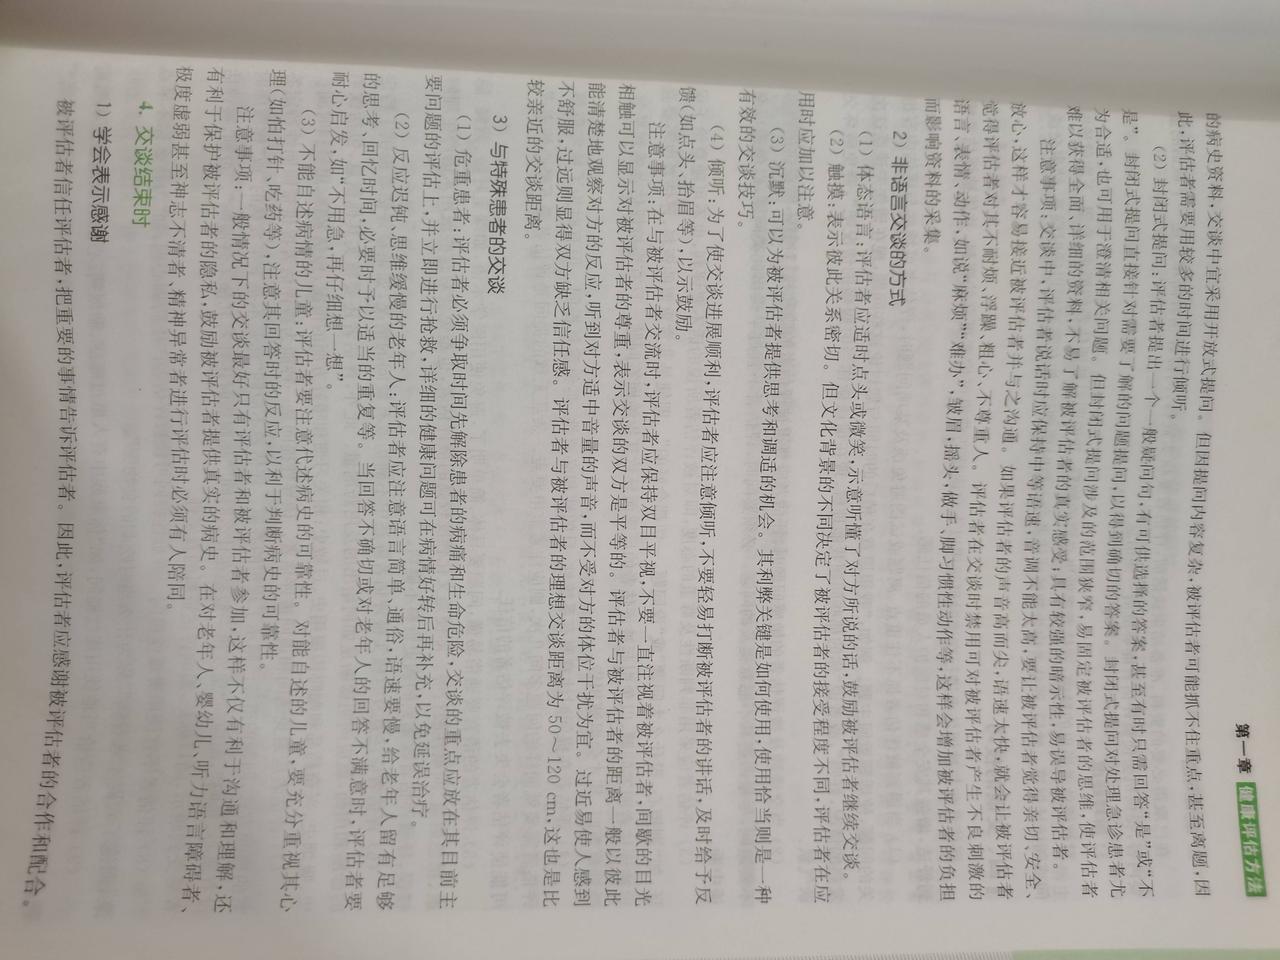 第一章 健康评估方法
的病史资料,交谈中宜采用开放式提问。但因提问内容复杂,被评估者可能抓不住重点,甚至离题,因
此,评估者需要用较多的时间进行倾听。
(2) 封闭式提问:评估者提出一个一般疑问句,有可供选择的答案,甚至有时只需回答“是”或“不
是”。封闭式提问直接针对需要了解的问题提问,以得到确切的答案。封闭式提问对处理急诊患者尤
为合适,也可用于澄清相关问题。但封闭式提问涉及的范围狭窄,易固定被评估者的思维,使评估者
难以获得全面、详细的资料,不易了解被评估者的真实感受;具有较强的暗示性,易误导被评估者。
注意事项:交谈中,评估者说话时应保持中等语速,音调不能太高,要让被评估者觉得亲切、安全、
放心,这样才容易接近被评估者并与之沟通。如果评估者的声音高而尖,语速太快,就会让被评估者
觉得评估者对其不耐烦、浮躁、粗心、不尊重人。评估者在交谈时禁用可对被评估者产生不良刺激的
语言、表情、动作,如说“麻烦”“难办”,皱眉,摇头,做手、脚习惯性动作等,这样会增加被评估者的负担
而影响资料的采集。
2) 非语言交谈的方式
(1) 体态语言:评估者应适时点头或微笑,示意听懂了对方所说的话,鼓励被评估者继续交谈。
(2) 触摸:表示彼此关系密切。但文化背景的不同决定了被评估者的接受程度不同,评估者在应
用时应加以注意。
(3) 沉默:可以为被评估者提供思考和调适的机会。其利弊关键是如何使用,使用恰当则是一种
有效的交谈技巧。
(4) 倾听:为了使交谈进展顺利,评估者应注意倾听,不要轻易打断被评估者的讲话,及时给予反
馈(如点头、抬眉等),以示鼓励。
注意事项:在与被评估者交流时,评估者应保持双目平视,不要一直注视着被评估者,间歇的目光
相触可以显示对被评估者的尊重,表示交谈的双方是平等的。评估者与被评估者的距离一般以彼此
能清楚地观察对方的反应,听到对方适中音量的声音,而不受对方的体位干扰为宜。过近易使人感到
不舒服,过远则显得双方缺乏信任感。评估者与被评估者的理想交谈距离为 50～120 cm,这也是比
较亲近的交谈距离。
3) 与特殊患者的交谈
(1) 危重患者:评估者必须争取时间先解除患者的病痛和生命危险,交谈的重点应放在其目前主
要问题的评估上,并立即进行抢救,详细的健康问题可在病情好转后再补充,以免延误治疗。
(2) 反应迟钝、思维缓慢的老年人:评估者应注意语言简单、通俗,语速要慢,给老年人留有足够
的思考、回忆时间,必要时予以适当的重复等。当回答不确切或对老年人的回答不满意时,评估者要
耐心启发,如“不用急,再仔细想一想”。
(3) 不能自述病情的儿童:评估者要注意代述病史的可靠性。对能自述的儿童,要充分重视其心
理(如怕打针、吃药等),注意其回答时的反应,以利于判断病史的可靠性。
注意事项:一般情况下的交谈最好只有评估者和被评估者参加,这样不仅有利于沟通和理解,还
有利于保护被评估者的隐私,鼓励被评估者提供真实的病史。在对老年人、婴幼儿、听力语言障碍者、
极度虚弱甚至神志不清者、精神异常者进行评估时必须有人陪同。
4. 交谈结束时
1) 学会表示感谢
被评估者信任评估者,把重要的事情告诉评估者。因此,评估者应感谢被评估者的合作和配合。